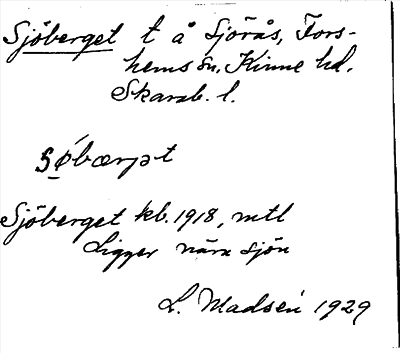 Sjöberget t å Sjörås, Fors-
hems sn, Kinne hd.
Skarab. l.
Sjöberget kb. 1918, mtl
Ligger nära sjön
L. Madsén 1929